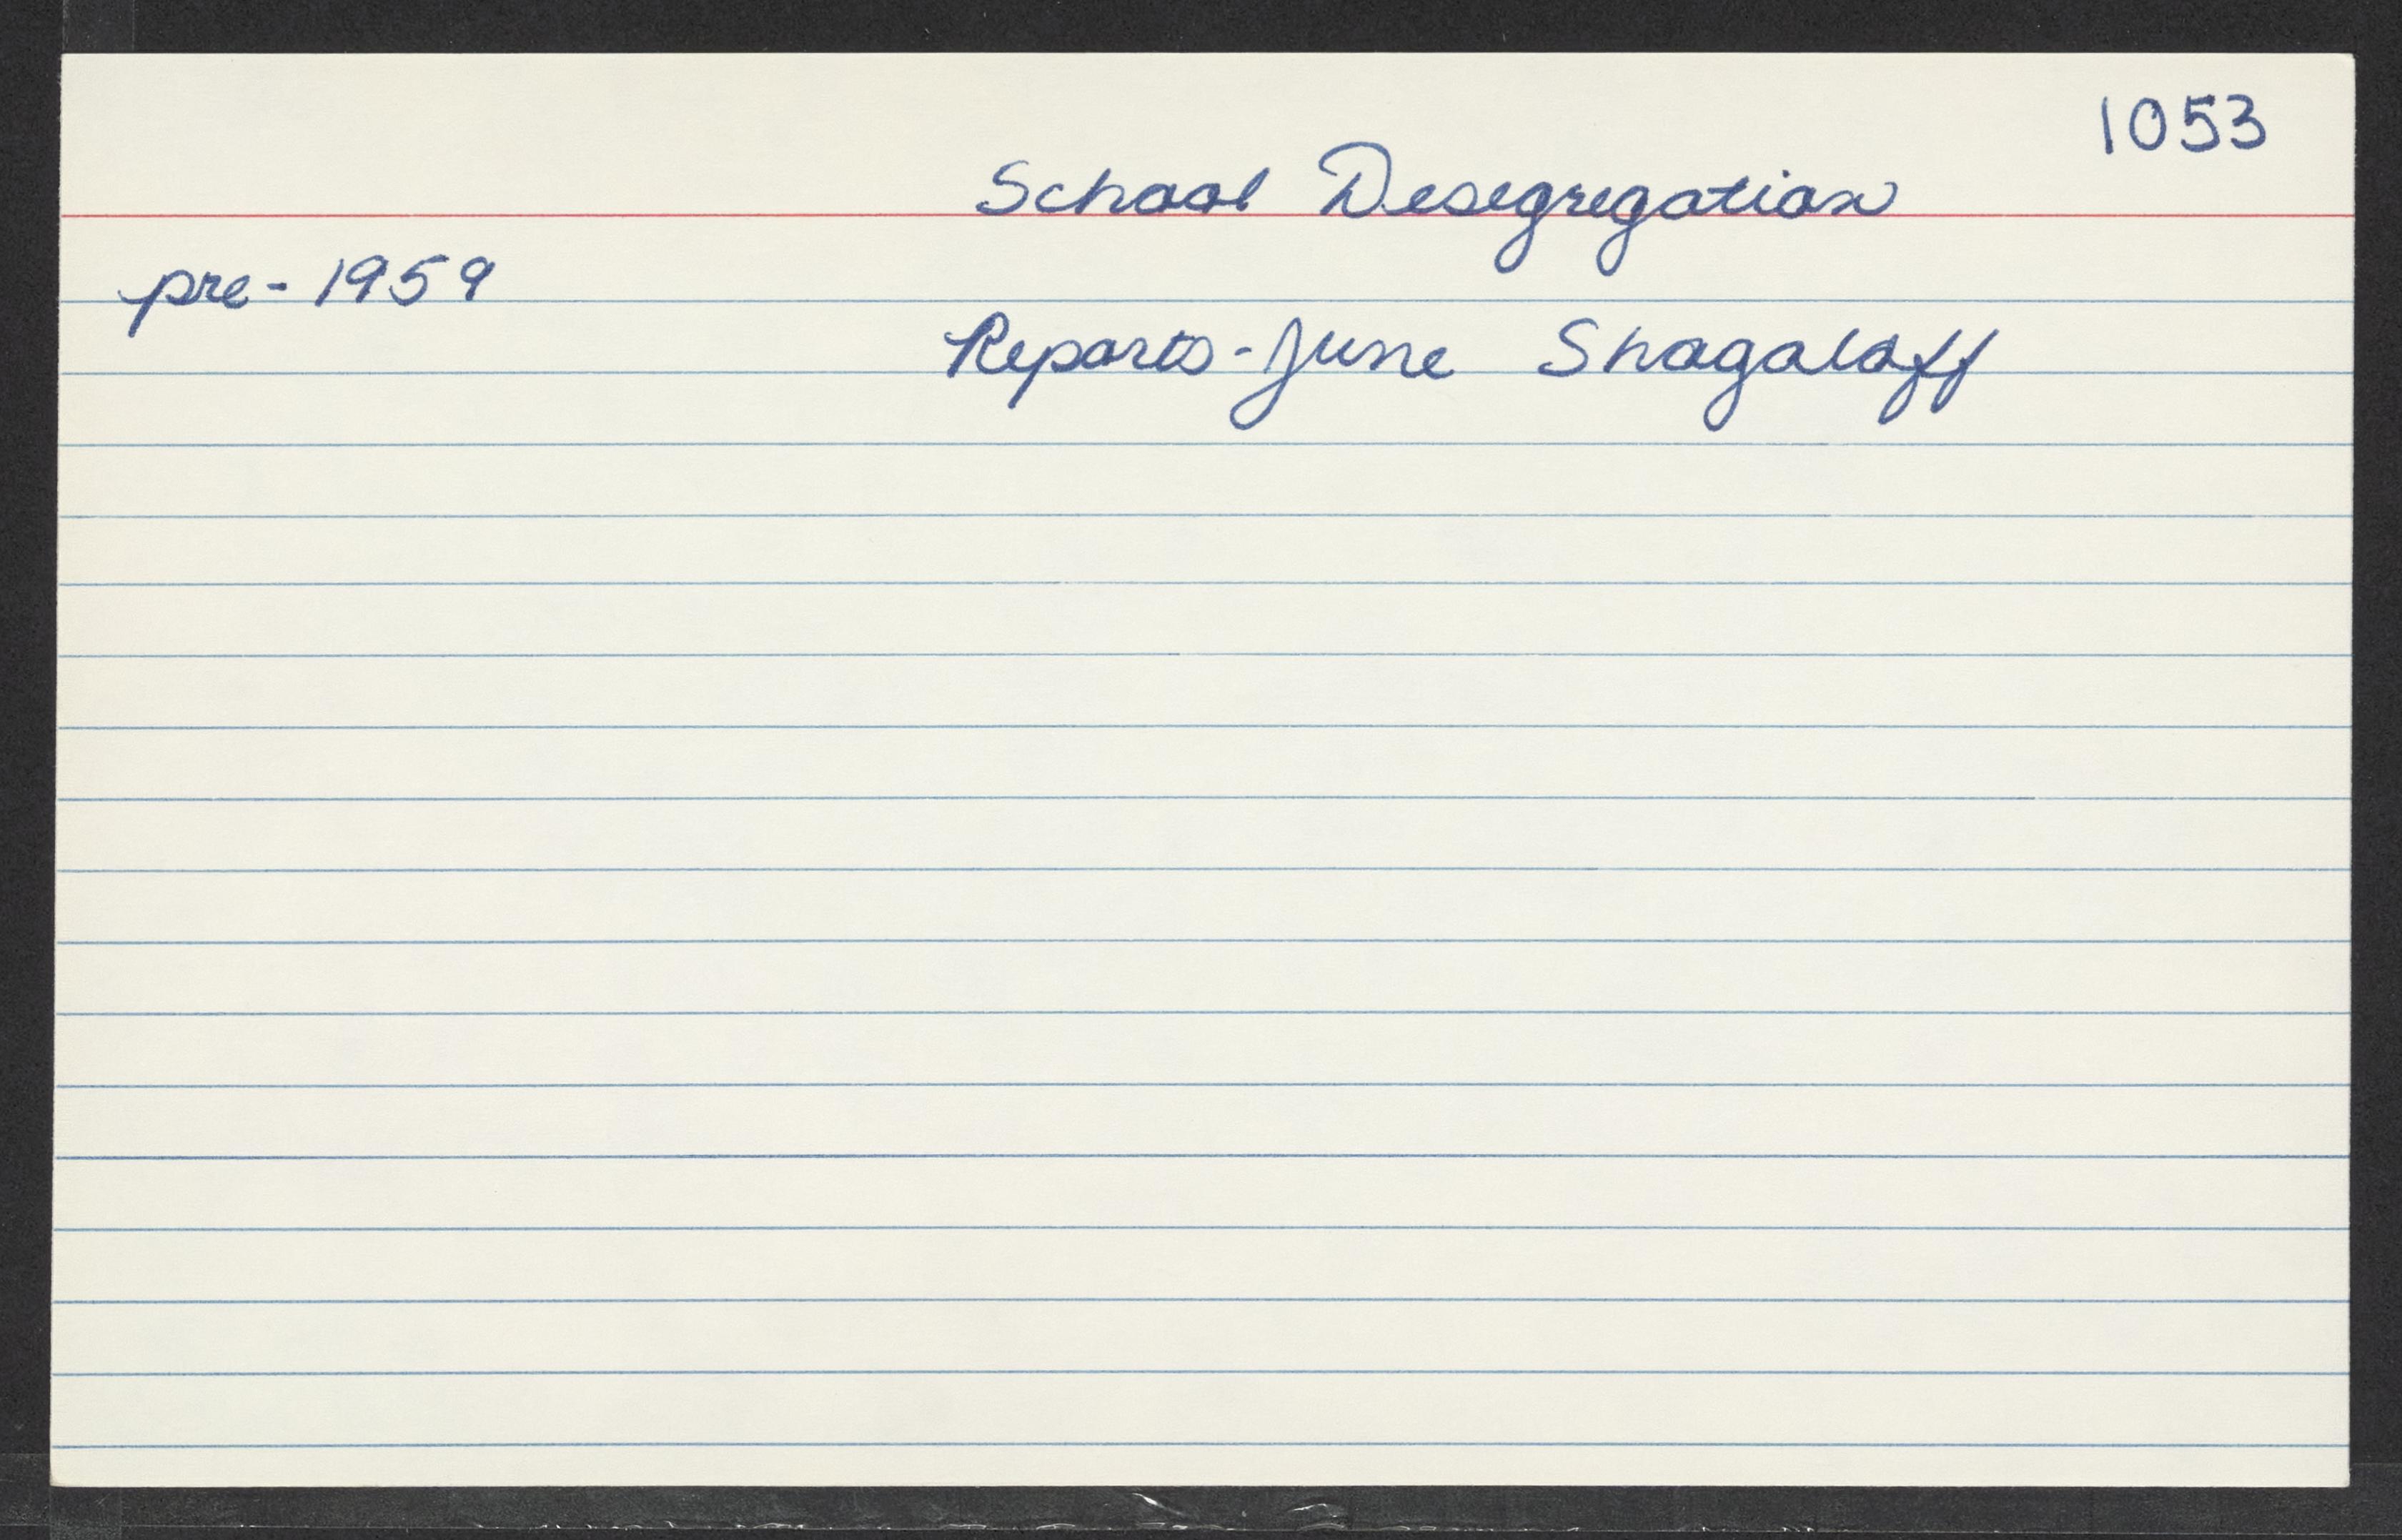 1053
School Desegregation
pre-1959
Reports-June Shagaloff